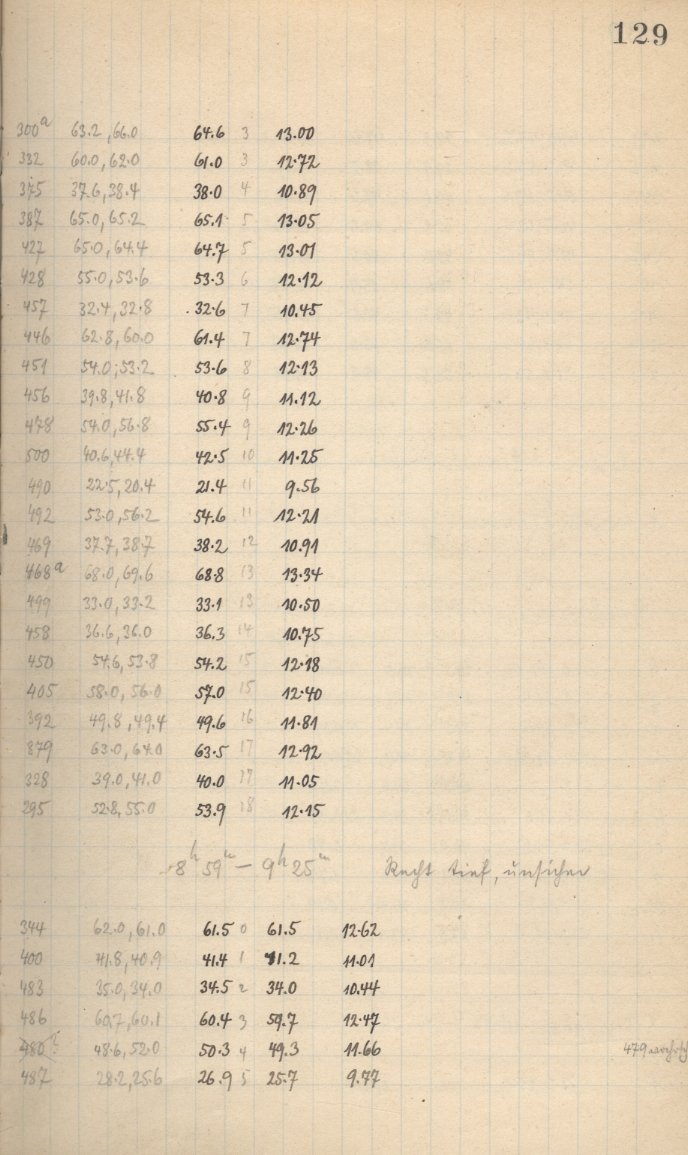 129
300a 63.2, 66.0 64.6 3 13.00
332 60.0, 62.0 61.0 3 12.72
375 37.6, 38.4 38.0 4 10.89
387 65.0, 65.2 65.1 5 13.05
427 65.0, 64.4 64.7 5 13.01
428 55.0, 53.6 53.3 6 12.12
457 32.4, 32.8 32.6 7 10.45
446 62.8, 60.0 61.4 7 12.74
451 54.0, 53.2 53.6 8 12.13
456 39.8, 41.8 40.8 9 11.12
478 54.0, 56.8 55.4 9 12.26
500 40.6, 44.4 42.5 10 11.25
490 22.5, 20.4 21.4 11 9.56
492 53.0, 56.2 54.6 11 12.21
469 37.7, 38.7 38.2 12 10.91
468a 68.0, 69.6 68.8 13 13.34
499 33.0, 33.2 33.1 13 10.50
458 36.6, 36.0 36.3 14 10.75
450 54.6, 53.8 54.2 15 12.18
405 58.0, 56.0 57.0 15 12.40
392 49.8, 49.4 49.6 16 11.81
379 63.0, 64.0 63.5 17 12.92
328 39.0, 41.0 40.0 17 11.05
295 52.8, 55.0 53.9 18 12.15
8h 59m – 9h 25m Recht tief, unsicher
344 62.0, 61.0 61.5 0 61.5 12.62
400 41.8, 40.9 41.4 1 41.2 11.01
483 35.0, 34.0 34.5 2 34.0 10.44
486 60.7, 60.1 60.4 3 59.7 12.47
480 48.6, 52.0 50.3 4 49.3 11.66 479
487 28.2, 25.6 26.9 5 25.7 9.77